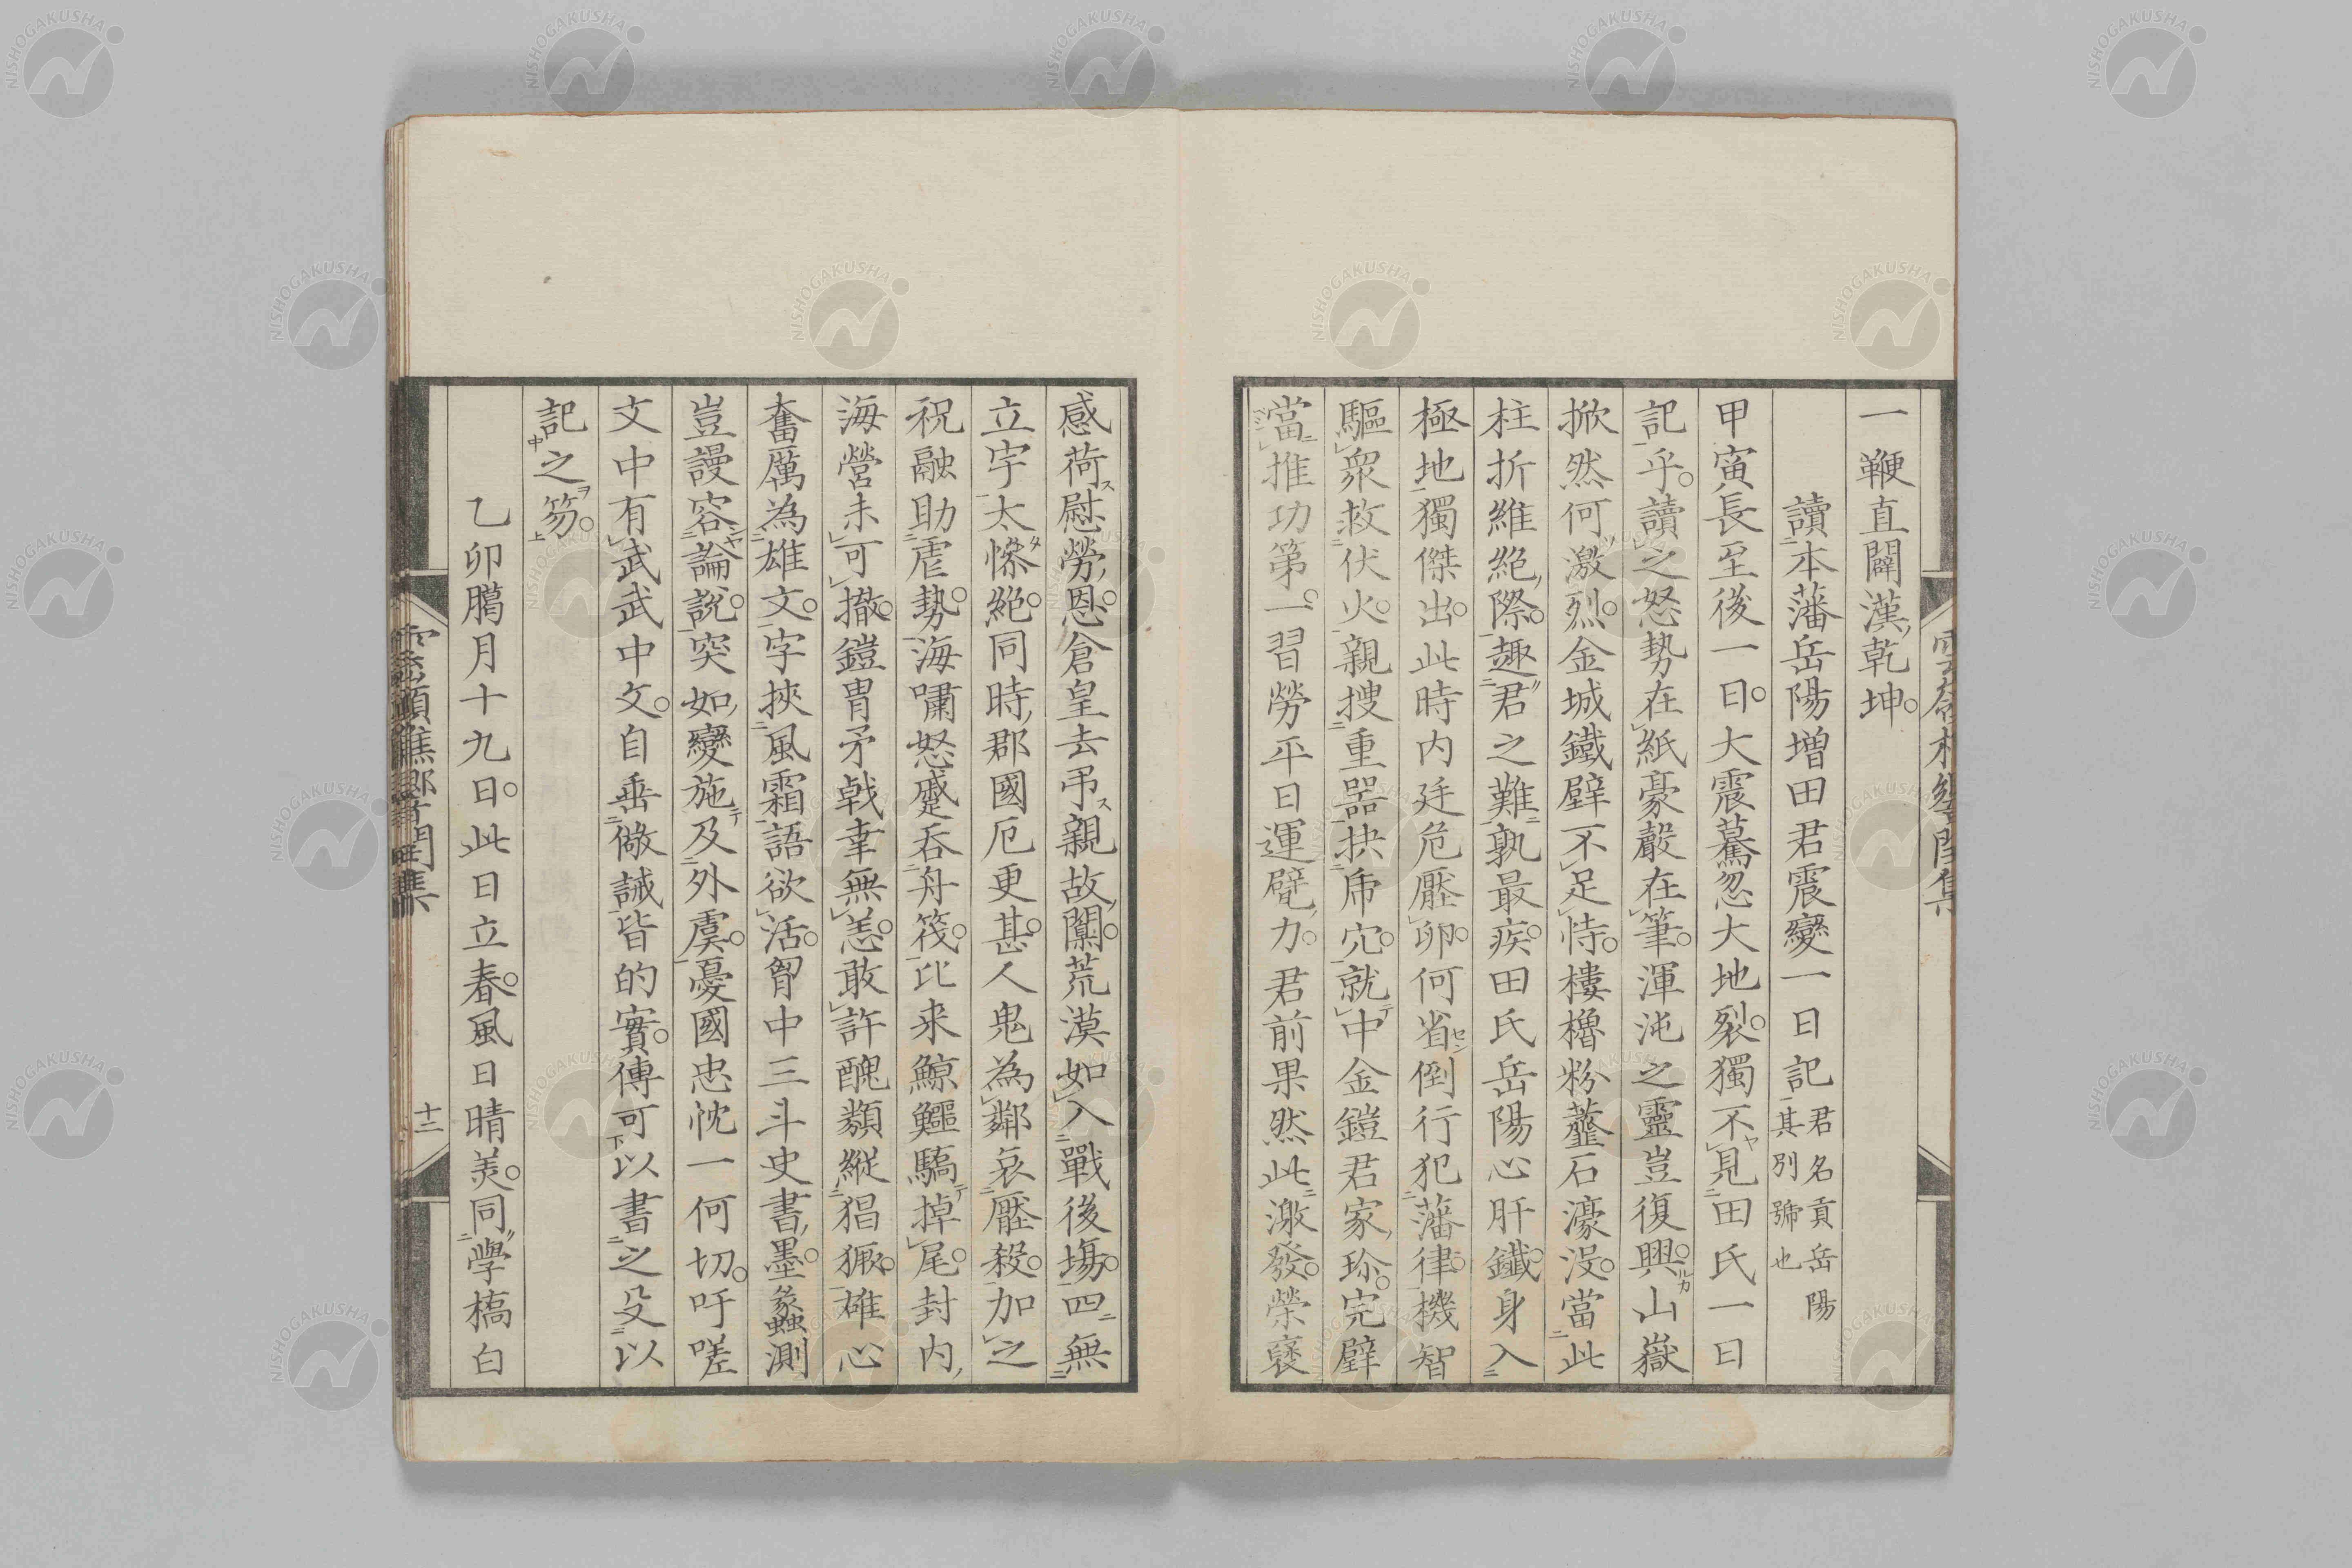 一鞭直闢漢乾坤。
讀本藩岳陽増田君震變一日記君名貢岳陽其別號也
甲寅長至後一日。大震驀忽大地裂。獨不見田氏一日
記乎。讀之怒勢在紙豪嚴在筆。渾沌之靈豈復興。山嶽
掀然何激烈。金城鐵壁不足恃。樓櫓粉虀石濠没。當此
柱折維絶際。趣君之難孰最疾。田氏岳陽心肝鐵。身入
極地獨傑出。此時内廷危壓卵。何省倒行犯藩律。機智
驅衆救伏火。親搜重器抉乕穴。就中金鎧君家珍。完璧
當推功第一。習勞平日運甓力。君前果然此激發。榮褒
感荷慰勞恩。倉皇去弔親故闃。荒漠如入戰後場。四無
立字太慘絶。同時郡國厄更甚。人鬼為鄰哀壓殺。加之
祝融助虐勢。海嘯怒蹙呑舟筏。比来鯨鱷驕掉尾。封内
海營未可撤。鎧冑矛戟幸無恙。敢許醜類縦猖獗。雄心
奮厲為雄文。字挾風霜語欲活。胷中三斗史書墨。蠡測
豈謾容論說。突如變施及外虞。憂國忠忱一何切。吁嗟
文中有武武中文。自垂儆誡皆的實。傳可以書之殳以
記之笏。
乙卯臈月十九日。此日立春。風日晴美。同學橋白
十二